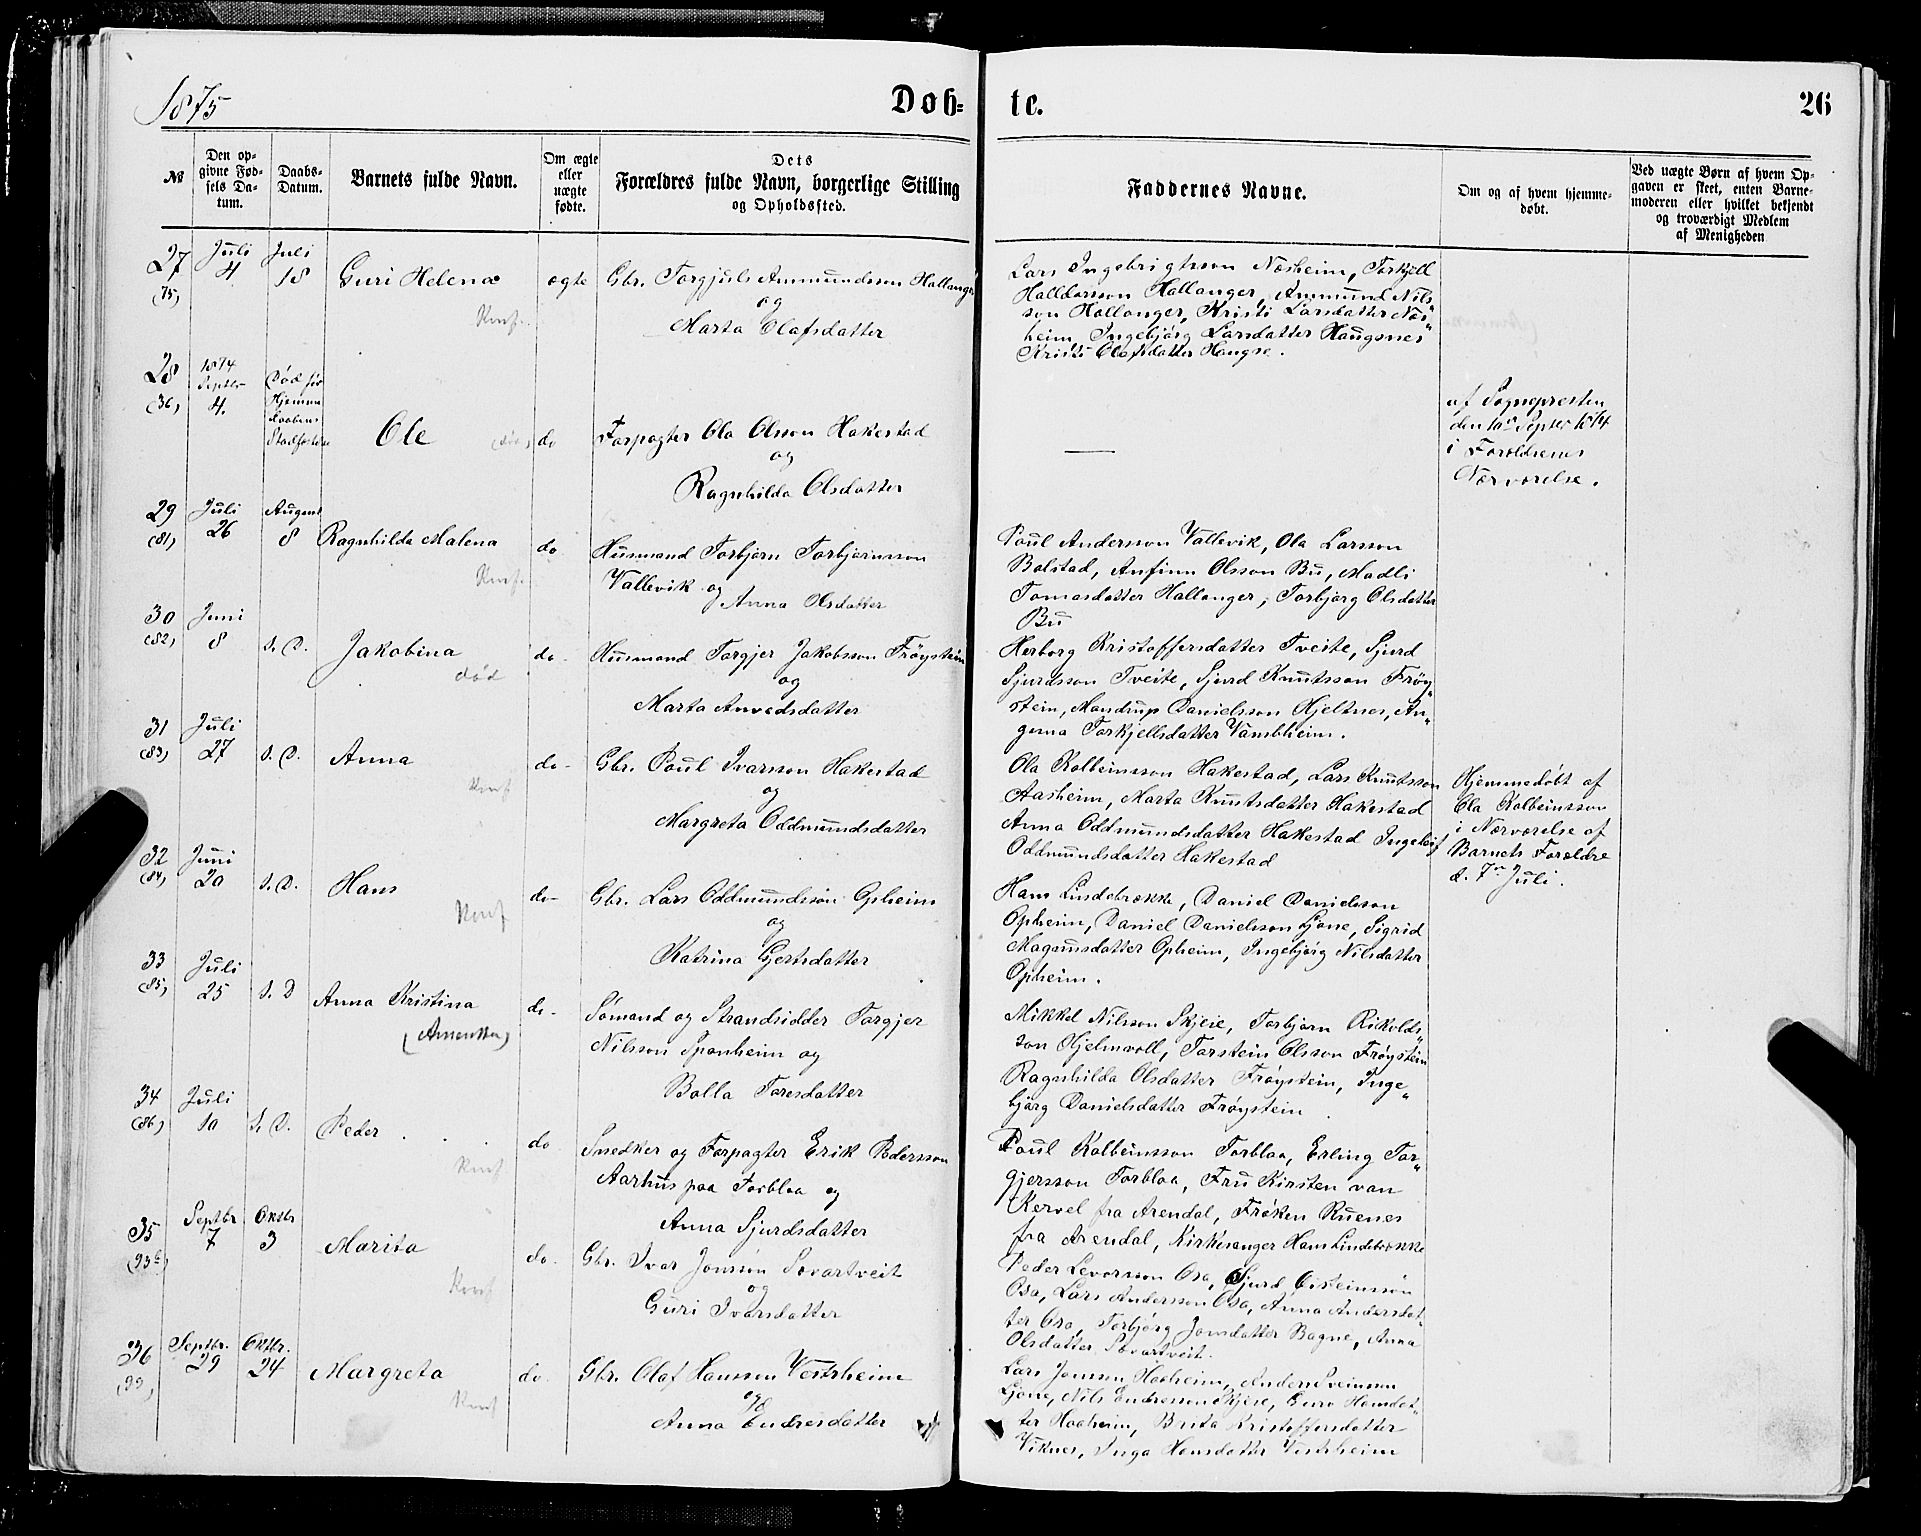 1875
Døb-
te.
26
№
Den op-
givne Fød-
sels Da-
tum.
Daabs-
Datum.
Barnets fulde Navn.
Om ægte
eller
uægte
fødte.
Dets
Forældres fulde Navn, borgerlige Stilling
og Opholdssted.
Faddernes Navne.
Om og af hvem hjemme-
døbt.
Ved uægte Børn af hvem Op-
gaven er skeet, enten Barne-
moderen eller hvilket bekjendt
og troværdigt Medlem
af Menigheden
27
(75)
Juli
4
Juli
18
Guri Helena
Konf.
ægte
Gbr. Torgjuls Ammundsson Hallanger
og
Marta Olafsdatter
Lars Ingebrigtsson Næsheim, Torkjell
Halldorsson Hallanger, Ammund Nils"
son Hallanger, Kristi Larsdatter Næs"
heim, Ingebjörg Larsdatter Haugsnes
Kristi Olafsdatter Haugse.
28
(36)
1874
Septbr
4.
Död før
Hjemme
daabens
Stadfæstelse
Ole
do
Forpagter Ola Olsson Hakestad
og
Ragnhilda Olsdatter
af Sognepresten
den 10de Septbr 1874
i Forældrenes
Nærværelse.
29
(81)
Juli
26
August
8
Ragnhilda Malena
Konf.
do
Husmand Torbjørn Torbjørnsson
Vallevik og
Anna Olsdatter
Poul Andersson Vallevik, Ola Larsson
Bolstad, Anfinn Olsson Bu, Madli
Tomasdatter Hallanger, Torbjørg Olsdatter
Bu
30
(82)
Juni
8
s. D.
Jakobina
død
do.
Husmand Torgjer Jakobsson Frøystein
og
Marta Anvedsdatter
Herborg Kristoffersdatter Tveite, Sjurd
Sjurdsson Tveite, Sjurd Knutsson Frøy"
stein, Mandrup Danielsson Hjeltnes, An"
guna Torkjellsdatter Vambheim.
31
(83)
Juli
27
s. D.
Anna
Konf
do.
Gbr. Poul Ivarsson Hakestad
og
Margreta Oddmundsdatter
Ola Kolbeinsson Hakestad, Lars Knutsson
Aasheim, Marta Knutsdatter Hakestad
Anna Oddmundsdatter Hakestad Ingebjg
Oddmundsdatter Hakestad
Hjemmedøbt af
Ola Kolbeinsson
i Nærværelse af
Barnets Forældre
d. 7de Juli.
32
(84)
Juni
20
s. D.
Hans
Konf
do-
Gbr. Lars Oddmundsson Opheim
og
Katrina Gjertsdatter
Hans Lindebrække, Daniel Danielsson
Opheim, Daniel Danielsson Gjøne, Sigrid
Magnusdatter Opheim, Ingebjørg Nilsdatter
Opheim.
33
(85)
Juli
25
s. D
Anna Kristina
(Amerika)
do.
Sømand og Strandsidder Torgjer
Nilsson Sponheim og
Bolla Toresdatter
Mikkel Nilsson Skjeie, Torbjørn Rikolds"
son Hjelmvoll, Torstein Olsson Frøystein
Ragnhilda Olsdatter Frøystein, Inge"
bjørg Danielsdatter Frøystein
34
(86)
Juli
10
s. D.
Peder
Konf
do
Snedker og Forpagter Erik Pedersson
Aarhus paa Torbloa og
Anna Sjurdsdatter
Poul Kolbeinsson Torbloa, Erling Tor"
gjersson Torbloa, Fru Kirsten van
Kervel fra Arendal, Frøken Ruenes
fra Arendal, Kirkesanger Hans Lindebrække
35
(93b)
Septbr
7
Oktbr
3
Marita
Konf
do.
Gbr. Ivar Jonsson Svartveit
og
Guri Ivarsdatter
Peder Levorsson Osa, Sjurd Eisteinsson
Osa, Lars Andersson Osa, Anna Andersdat"
ter Osa, Torbjørg Jonsdatter Bagne, Anna
Olsdatter Svartveit.
36
(99)
Septbr.
29
Oktbr.
24
Margreta
Konf
do.
Gbr. Olaf Hansson Vestrheim
og
Anna Endresdatter
Lars Jonsson Haaheim, Anders Sveinsson
Gjøne, Nils Endresson Skjeie, Guro Hansdat"
ter Haaheim, Brita Kristoffersdatter
Viknes, Inga Hansdatter Vestrheim